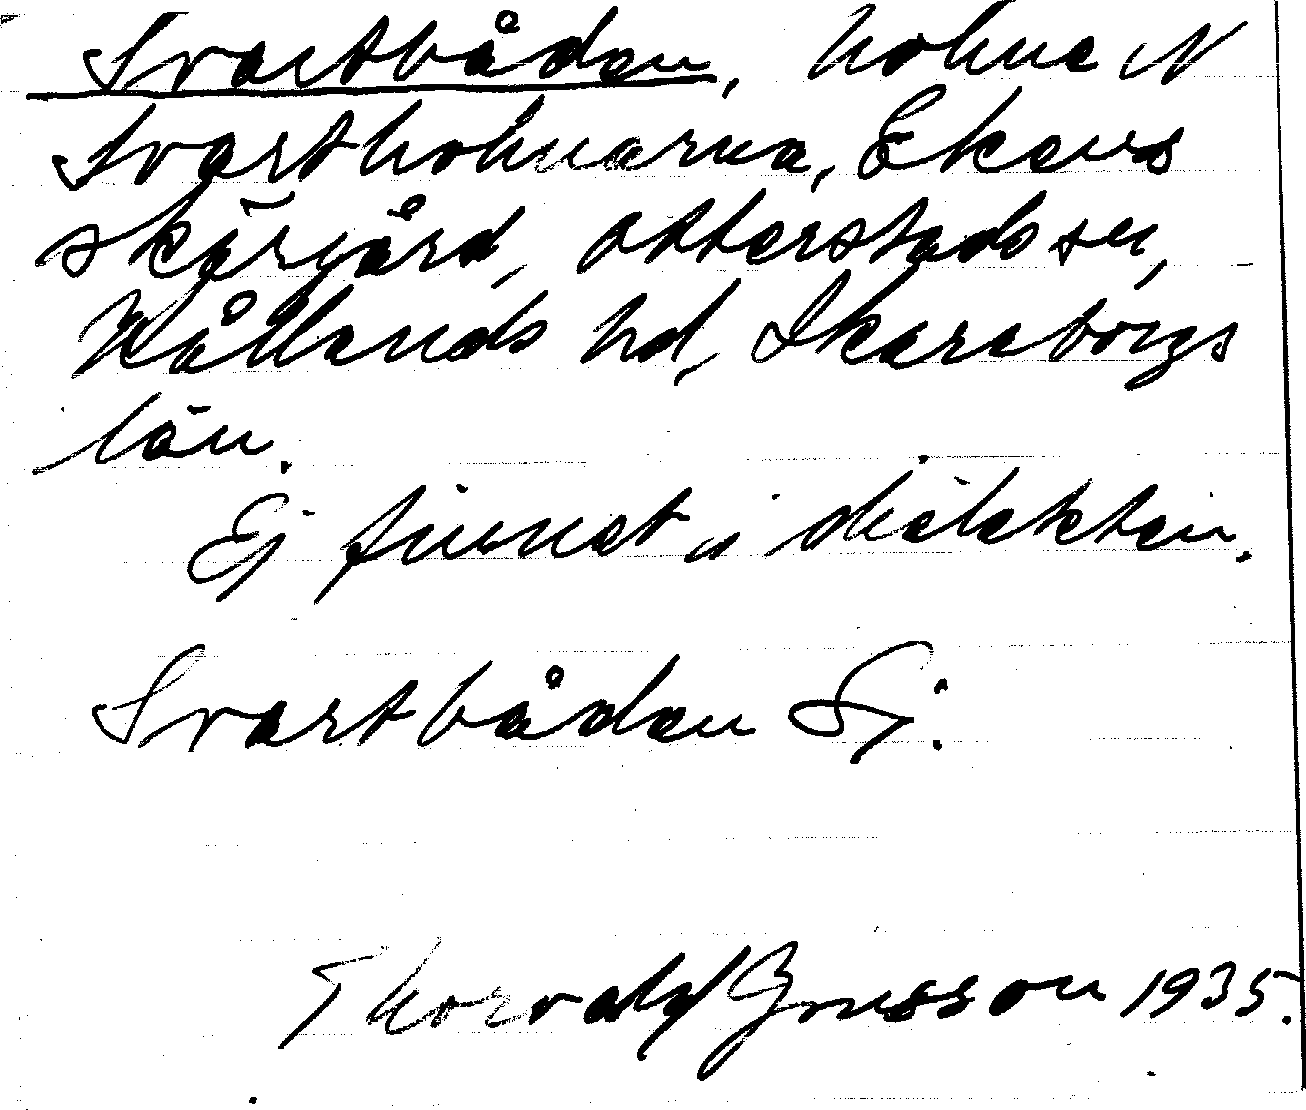 Svartbådan, holme N
Svartholmarna, Ekens
skärgård, Otterstads sn,
Kållands hd, Skaraborgs
län.
Ej funnet i dialekten.
Svartbådan Sj.
Thorvald Jonsson 1935.